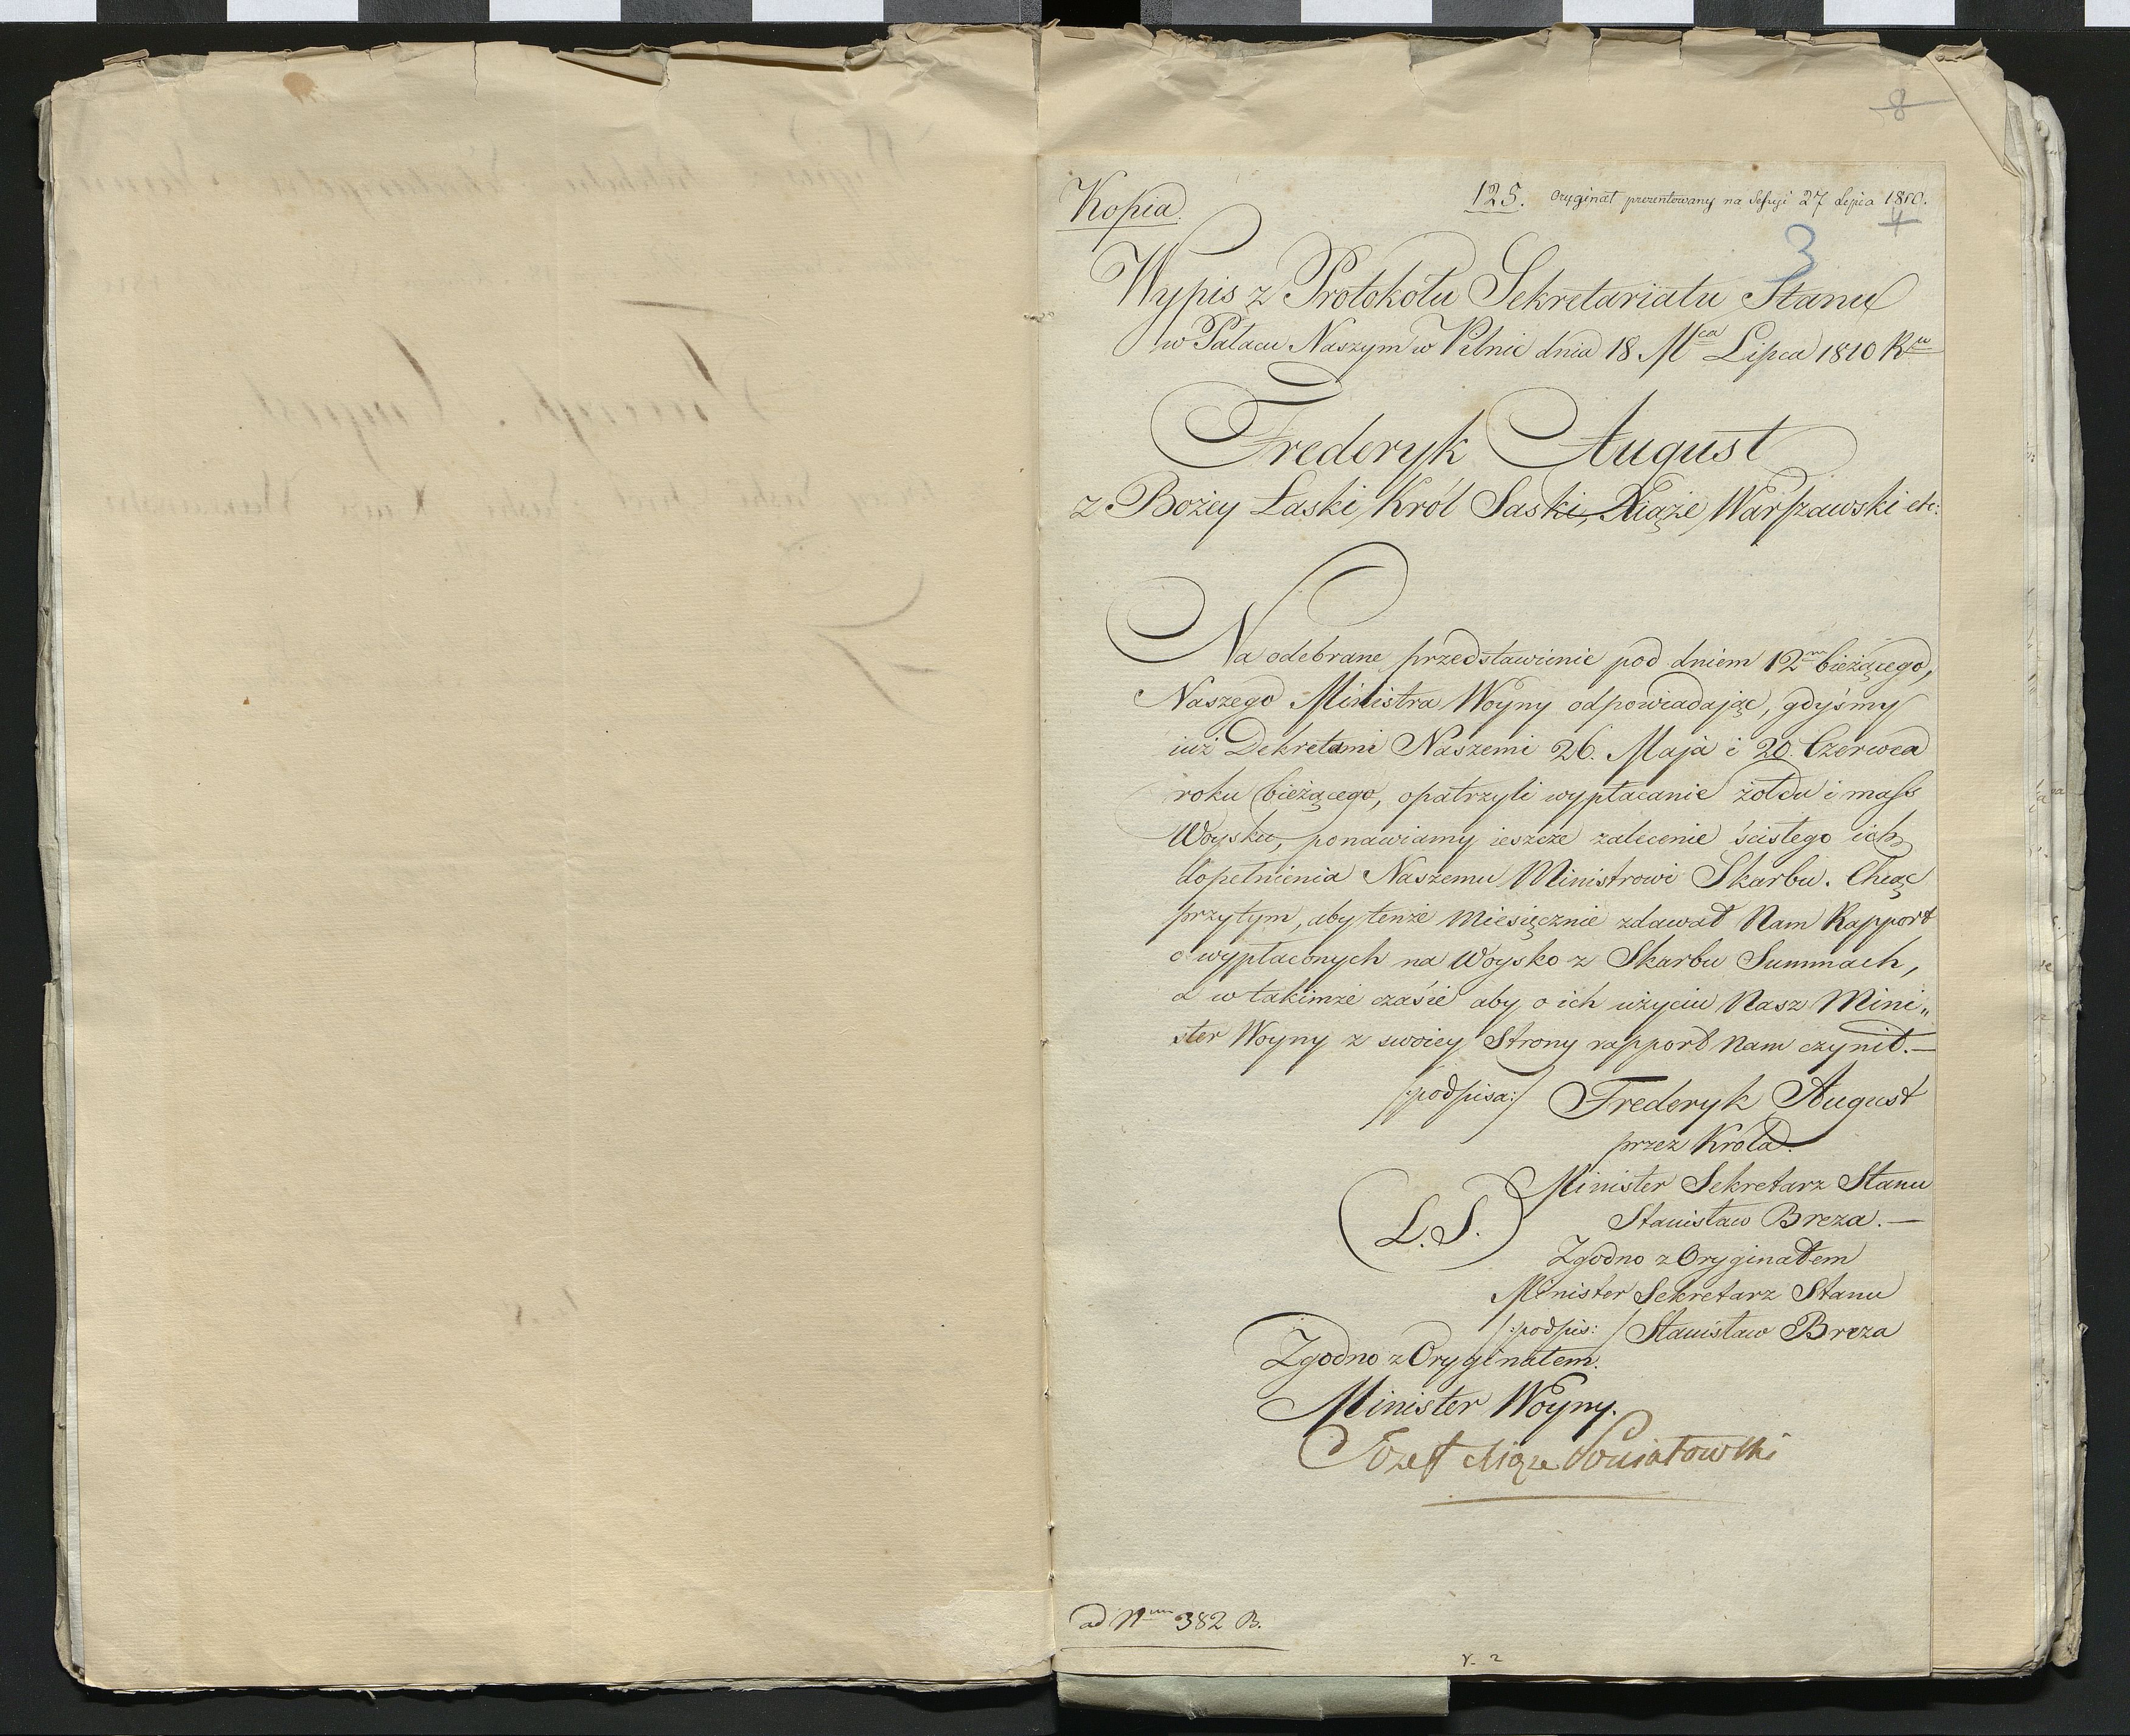 8
Kopia.
125. Oryginał prezentowany na Sessyi 27 Lipca 1810.
4
3
Wypis z Protokołu Sekretariatu Stanu
w Pałacu Naszym w Pilnic dnia 18 Mca Lipca 1810 Ru
Frederyk August
z Bożey Łaski Król Saski, Xiąże Warszawski etc:
Na odebrane przedstawienie pod dniem 12m bieżącego,
Naszego Ministra Woyny odpowiadając, gdyśmy
iuż Dekretami Naszemi 26. Maja i 20. Czerwca
roku bieżącego, opatrzyli wypłacanie żołdu i mass
Woysku, ponawiamy ieszcze zalecenie ścisłego ich
dopełnienia Naszemu Ministrowi Skarbu. Chcąc
przytym, aby tenże Miesięcznie zdawał Nam Rapport
o wypłaconych na Woysko z Skarbu Summach,
a w takimże czasie aby o ich użyciu Nasz Mini„
ster Woyny z swoiey Strony rapport Nam czynił.—
/:podpisa:/ Frederyk August
przez Króla.
Minister Sekretarz Stanu
(L.S.) Stanisław Breza.—
Zgodno z Oryginałem
Minister Sekretarz Stanu
/:podpis:/ Stanisław Breza
Zgodno z Oryginałem.
Minister Woyny.
Józef Xiąże Poniatowski
ad Num 382 B.